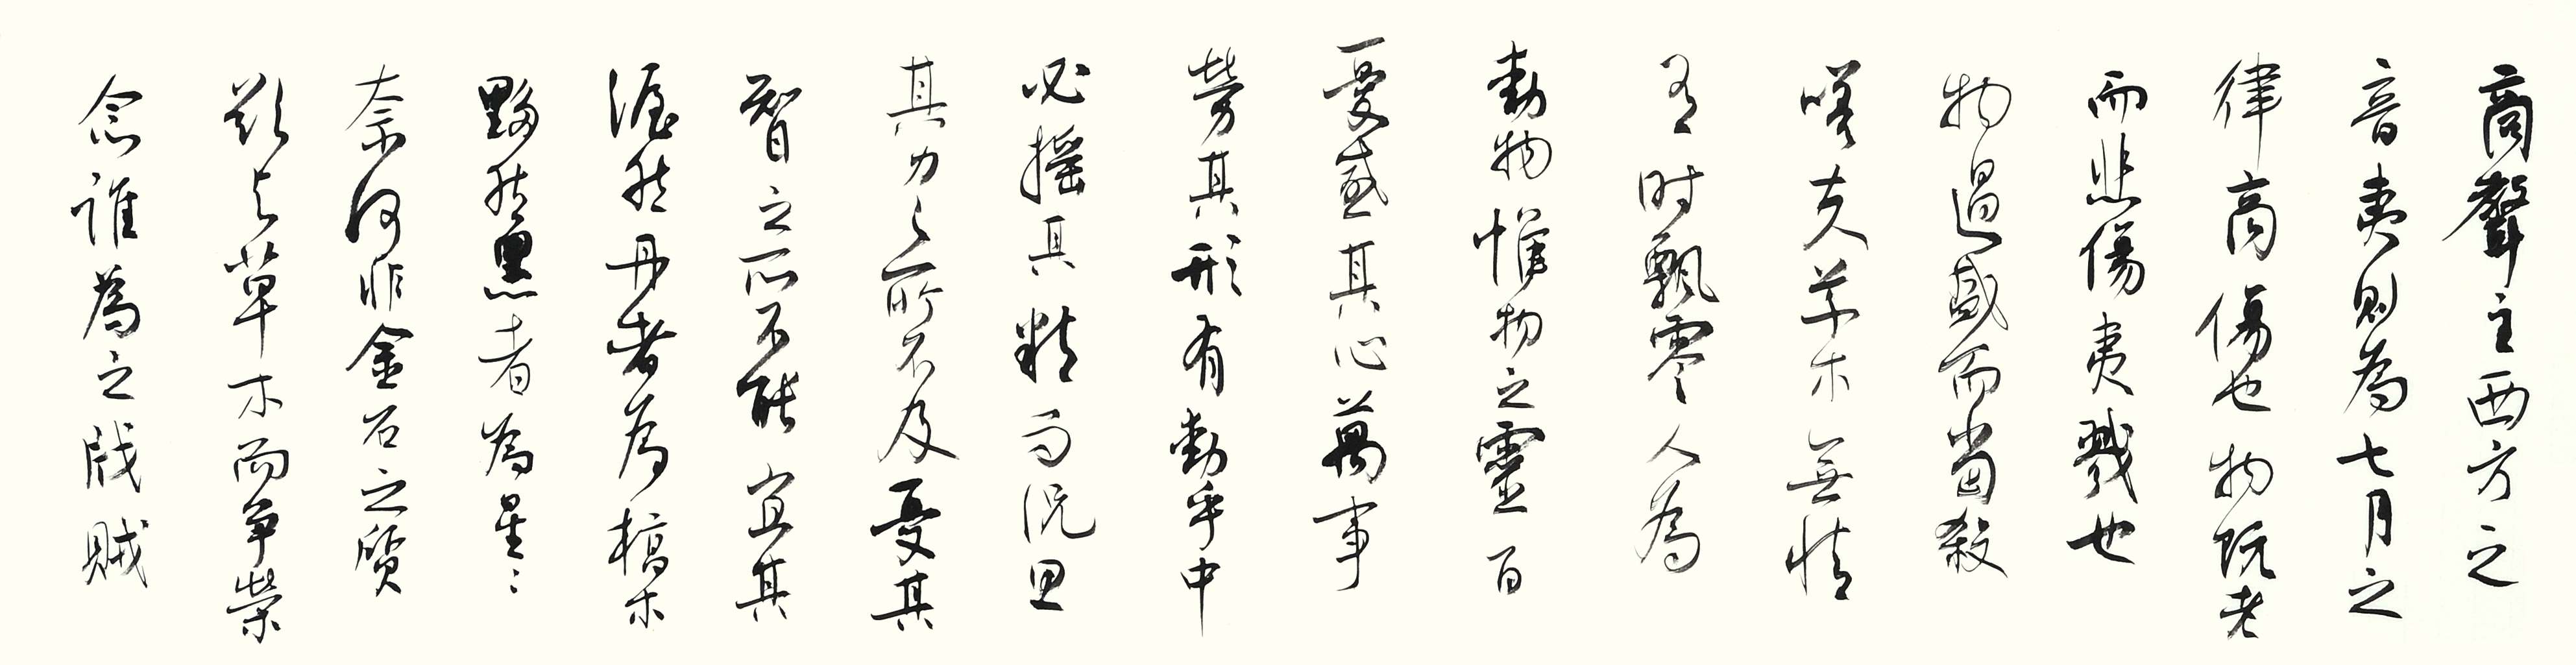 商聲主西方之
音夷則為七月之
律商傷也物既老
而悲傷夷戮也
物過盛而當殺
嗟夫草木無情
有時飄零人為
動物惟物之靈百
憂感其心萬事
勞其形有動乎中
必搖其精而況思
其力之所不及憂其
智之所不能宜其
渥然丹者為槁木
黟然黑者為星星
奈何非金石之質
欲與草木而爭榮
念誰為之戕賊